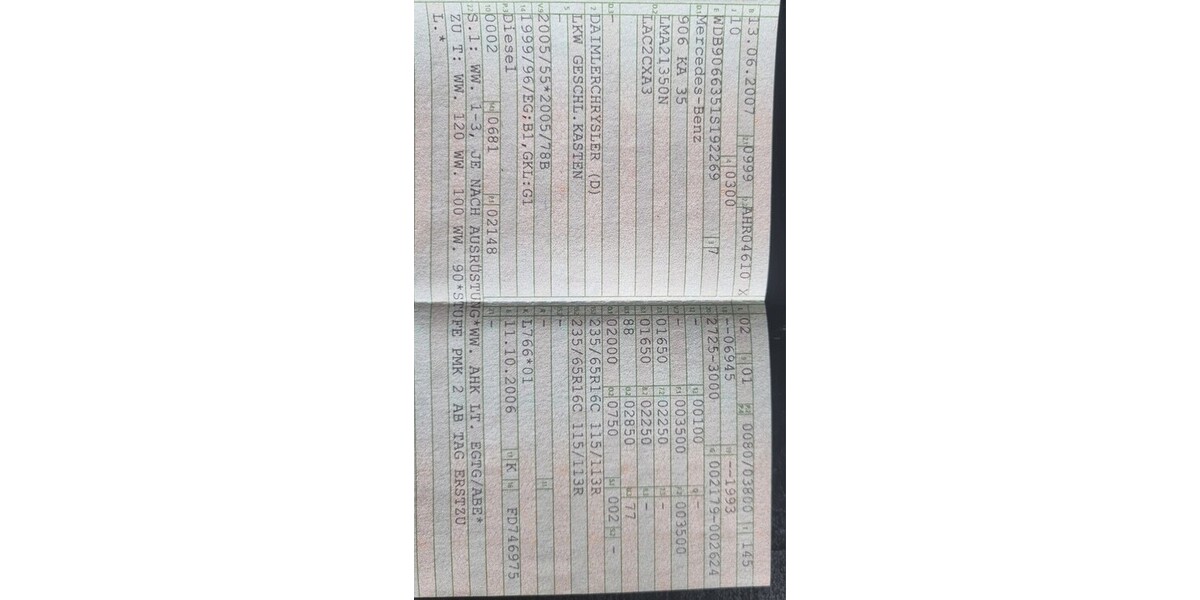 13.06.2007 0999 AHR04610 X
10 0300
WDB9066351S192269 7
Mercedes-Benz
906 KA 35
LMA21350N
LAC2CXA3
-
DAIMLERCHRYSLER (D)
LKW GESCHL.KASTEN
-
2005/55*2005/78B
1999/96/EG;B1,GKL:G1
Diesel
0002 0681 02148
S.1: WW. 1-3, JE NACH AUSRÜSTUNG*WW. AHK LT. EGTG/ABE*
ZU T: WW. 120 WW. 100 WW. 90*STUFE PMK 2 AB TAG ERSTZU
L.*
02 01 0080/03800 145
--06945 --1993
2725-3000 002179-002624
- 00100 -
- 003500 003500
01650 02250 -
01650 02250 -
88 02850 77
02000 0750 002 -
235/65R16C 115/113R
235/65R16C 115/113R
-
-
L766*01
11.10.2006 K FD746975
-